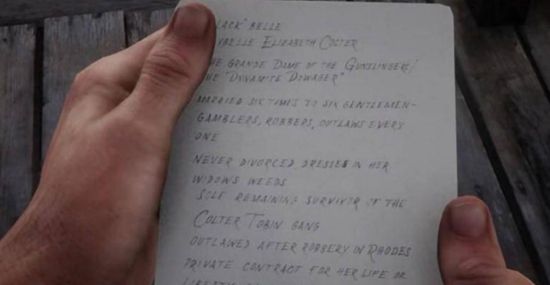 BLACK" BELLE
YBELLE ELIZABETH COLTER
THE GRANDE DAME OF THE GUNSLINGERS/
THE "DYNAMITE DOWAGER"
MARRIED SIX TIMES TO SIX GENTLEMEN-
GAMBLERS, ROBBERS, OUTLAWS EVERY
ONE
NEVER DIVORCED, DRESSES IN HER
WIDOWS WEEDS
SOLE REMAINING SURVIVOR OF THE
COLTER TOBIN GANG
OUTLAWED AFTER ROBBERY IN RHODES
PRIVATE CONTRACT FOR HER LIFE OR